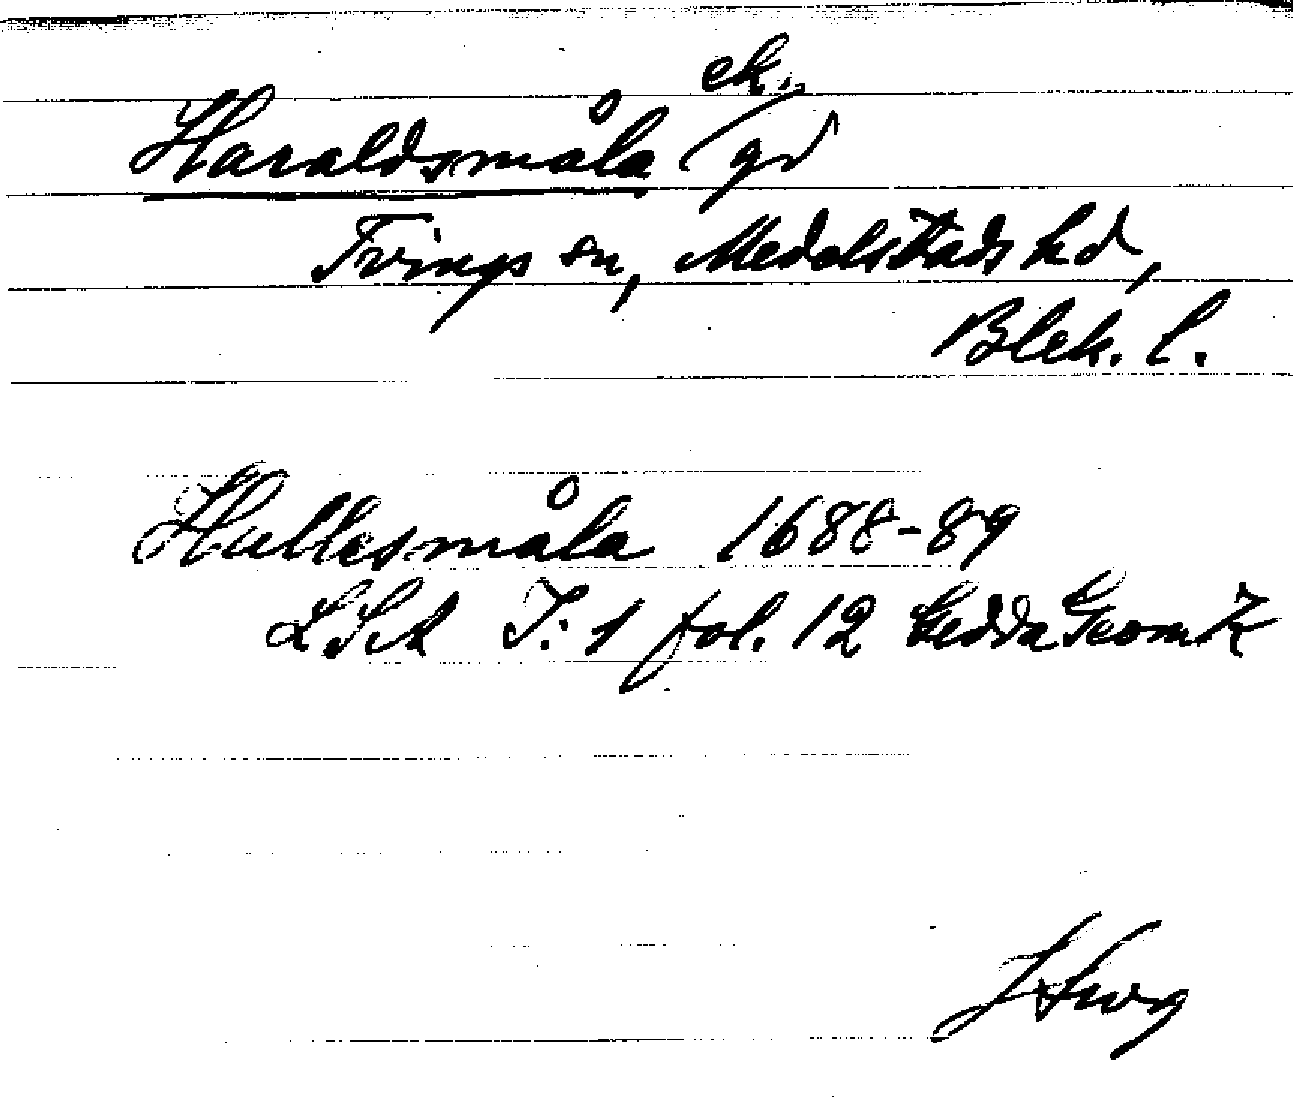 ek.
Haraldsmåla gd
Tvings sn, Medelstads hd,
Blek. l.
Hallesmåla 1688-89
LSA I:1 fol. 12 Gedda Geom K